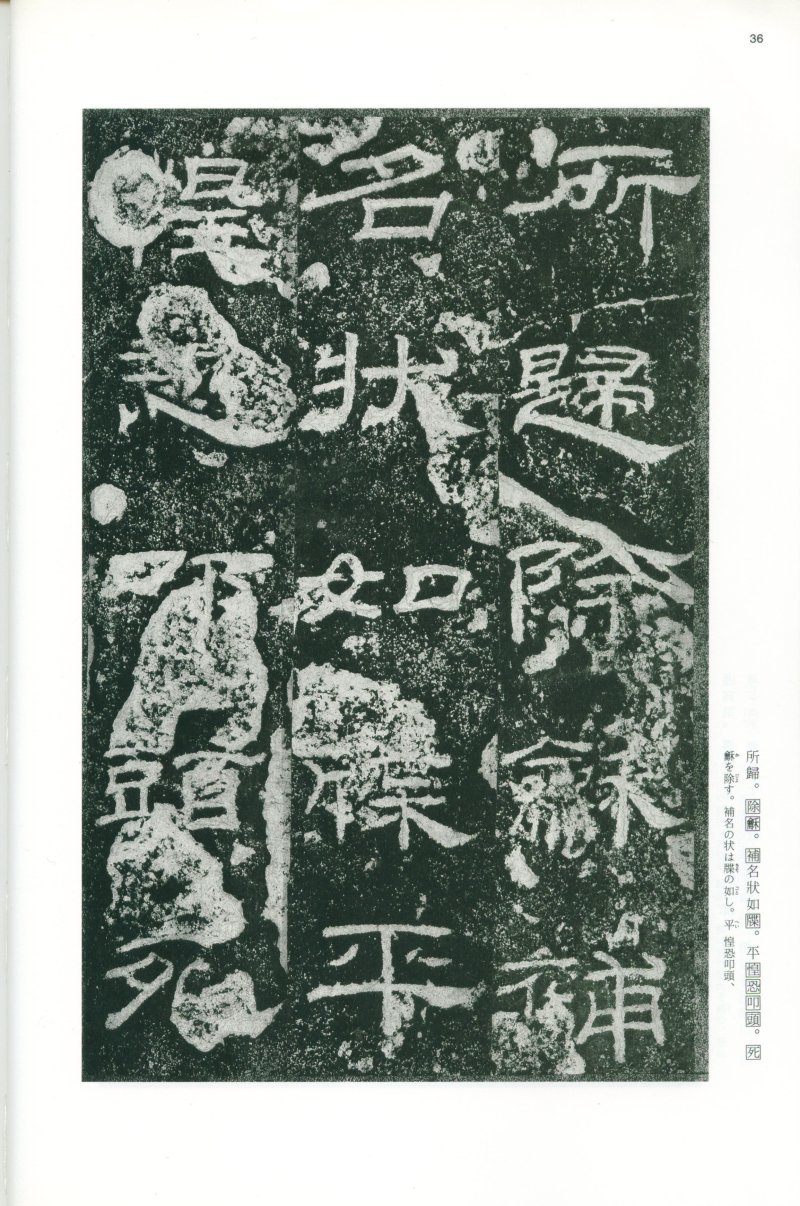 36
所歸除龢補
名狀如牒平
惶恐叩頭死
所歸。除龢。補名狀如牒。平惶恐叩頭。死
龢を除す。補名の状は牒の如し。平 惶恐叩頭、